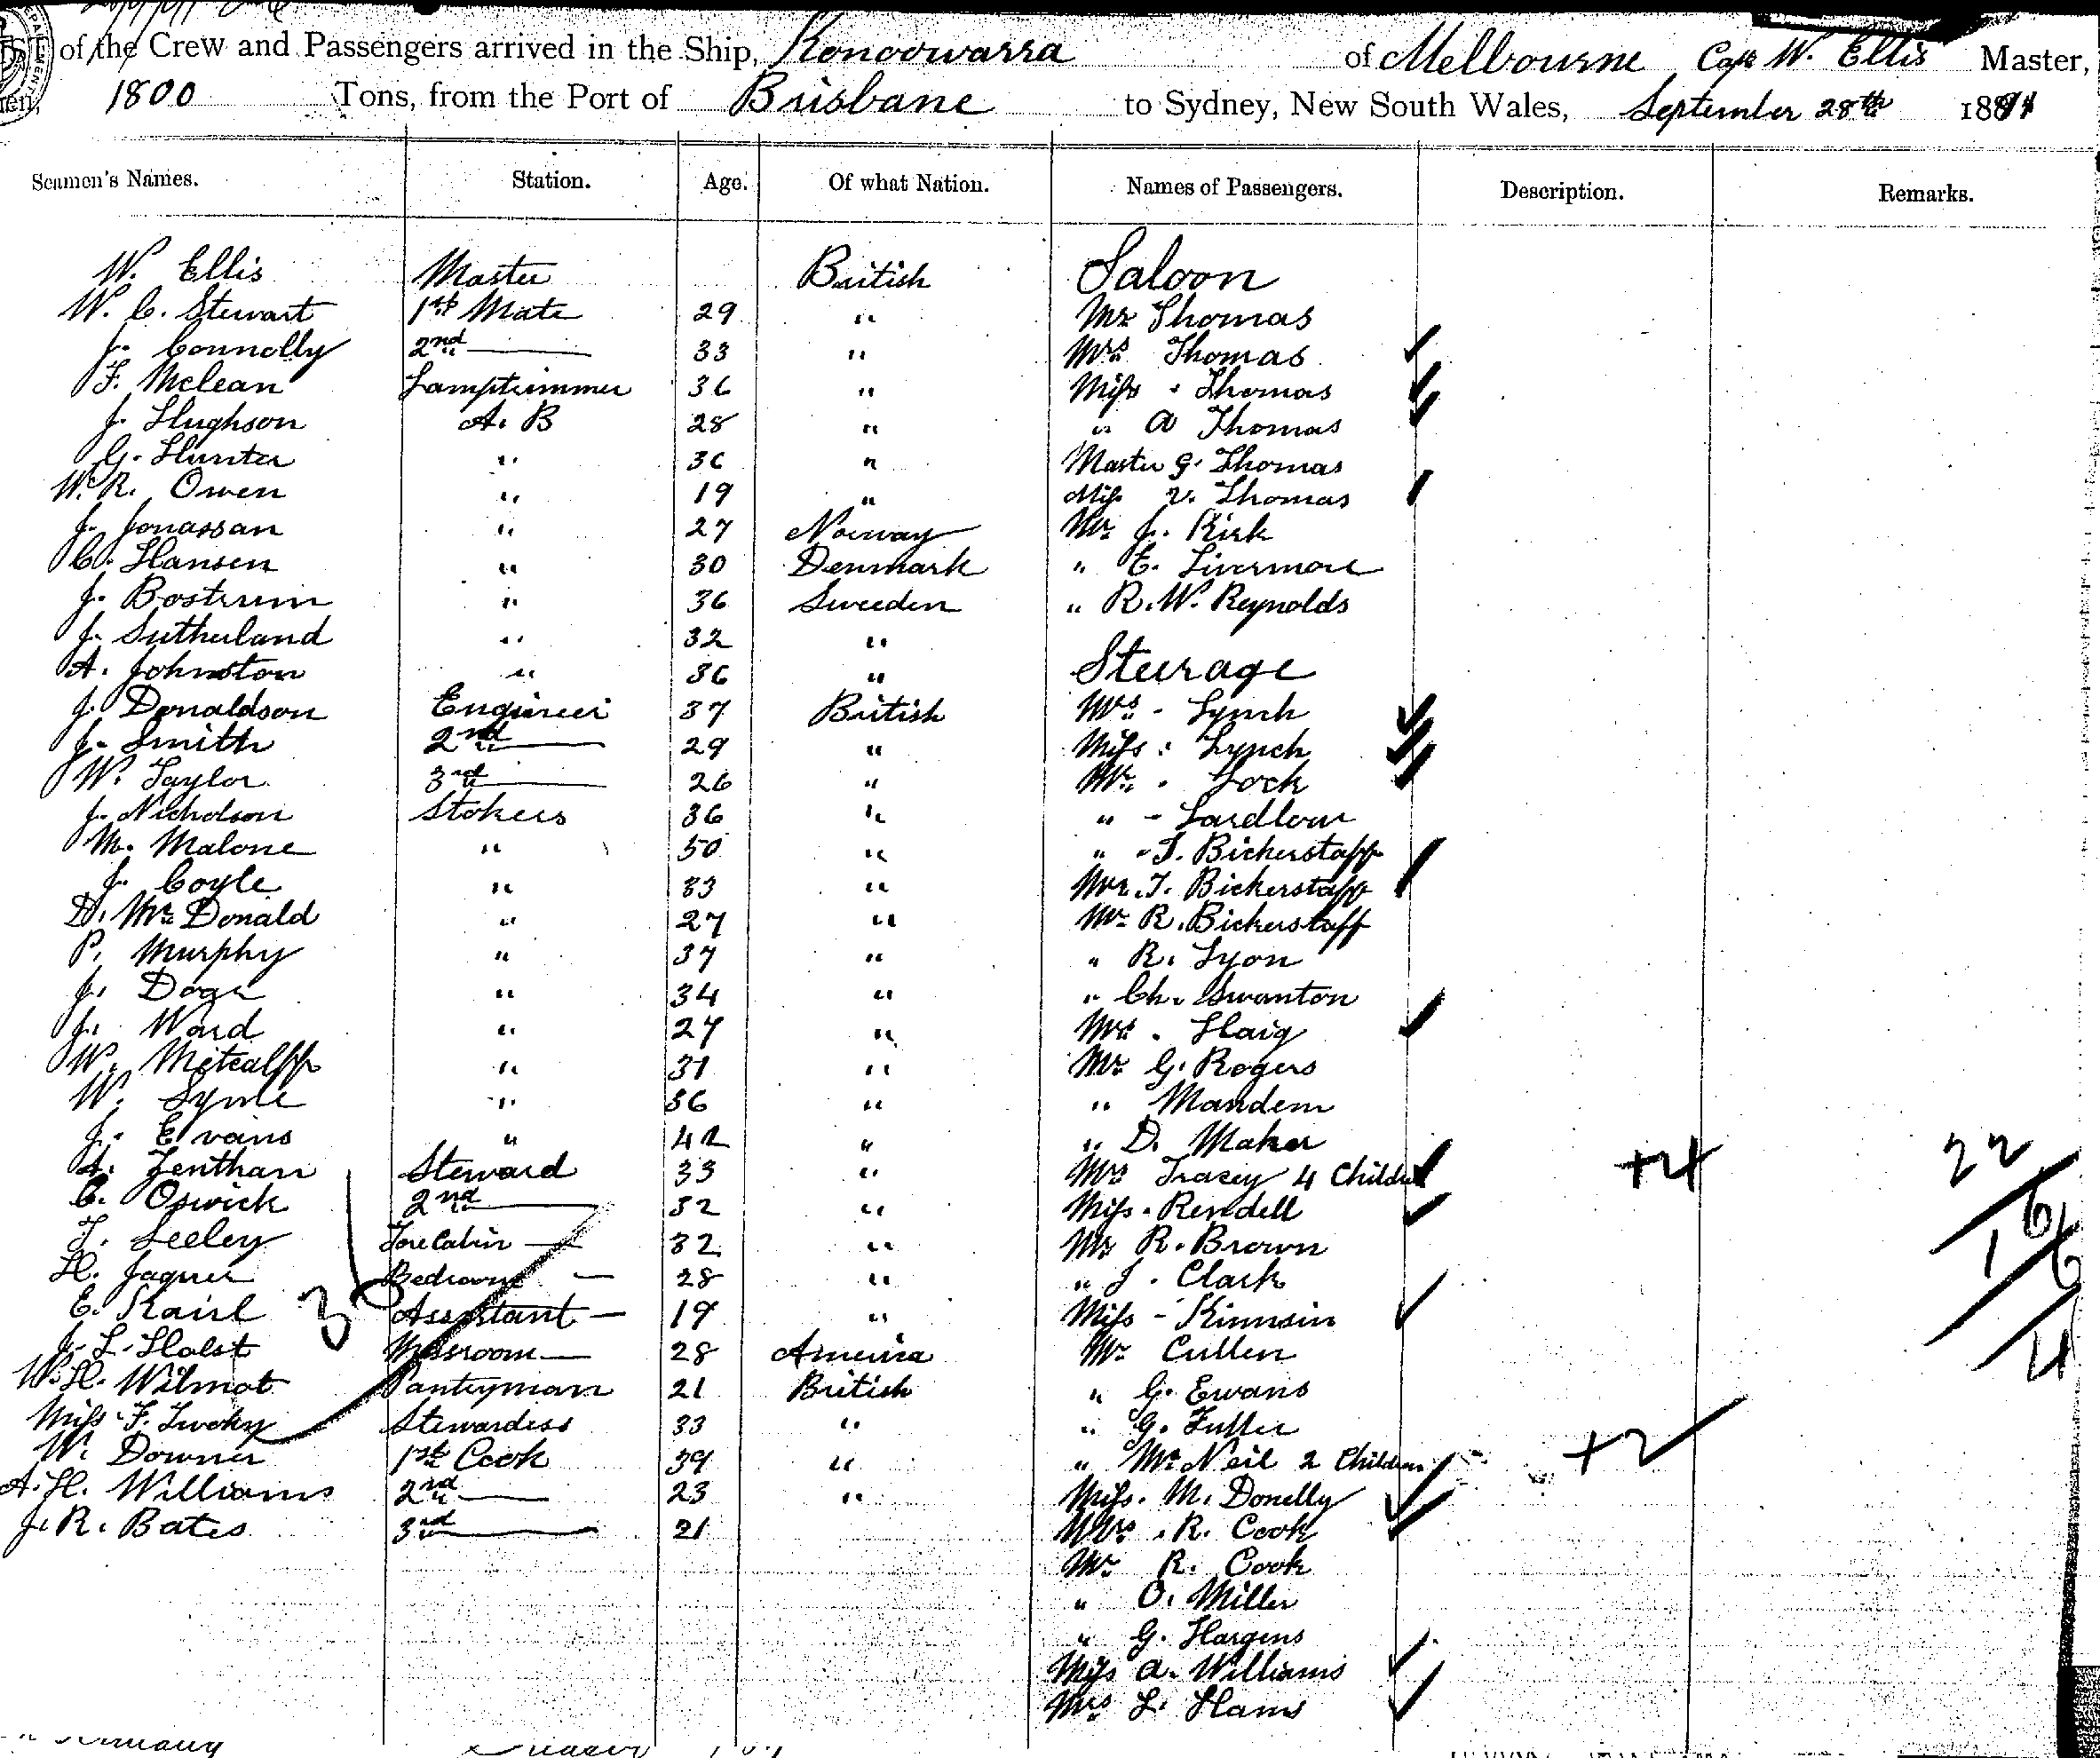 of the Crew and Passengers arrived in the Ship, Konoowarra of Melbourne Capt W. Ellis Master,
1800 Tons, from the Port of Brisbane to Sydney, New South Wales, September 28th 1891
Seamen's Names. Station. Age. Of what Nation. Names of Passengers. Description. Remarks.
W. Ellis Master British Saloon
W. C. Stewart 1st Mate 29 " Mr Thomas
J. Connolly 2nd — 33 " Mrs Thomas
F. Mclean Lamptrimmer 36 " Miss Thomas
J. Hughson A. B 28 " " A Thomas
G. Hunter " 36 " Master G. Thomas
W. R. Owen " 19 " Miss V. Thomas
J. Jonassan " 27 Norway Mr J. Kirk
C. Hansen " 30 Denmark " E. Livermore
J. Bostrum " 36 Sweeden " R. W. Reynolds
J. Sutherland " 32 "
A. Johnston " 36 " Steerage
J. Donaldson Engineer 37 British Mrs Lynch
J. Smith 2nd — 29 " Miss Lynch
W. Taylor 3rd — 26 " Lock
J. Nicholson Stokers 36 " "
M. Malone " 50 " " T. Bickerstaff
J. Coyle " 33 " Mrs T. Bickerstaff
D. McDonald " 27 " Mr R. Bickerstaff
P. Murphy " 37 " " R. Lyon
J. " 34 " " Ch. Swanton
J. Ward " 27 " Mrs Haig
W. Metcalff " 31 " Mr G. Rogers
W. Syme " 36 " " Mandem
J. Evans " 42 " " D. Maher
A. Zenthan Steward 33 " Mrs Tracey 4 Children +4 22
C. Oswick 2nd — 32 " Miss Rendell 16
T. Seeley Forecabin — 32 " Mr R. Brown 16
H. Jaguer Bedroom — 28 " " J. Clark
E. Kairl Assistant — 19 " Miss Kinnsin
J. L. Holst Messroom — 28 America Mr Cullen
W. H. Wilmot Pantryman 21 British " G. Ewans
Miss F. Stewardess 33 " " G. Fuller
W. Downer 1st Cook 39 " " McNeil 2 Children +2
A. H. Williams 2nd — 23 " Miss M. Donelly
J. R. Bates 3rd — 21 Mrs R. Cook
Mr R. Cook
" O. Miller
" G. Hargens
Miss A. Williams
Mrs L. Hams